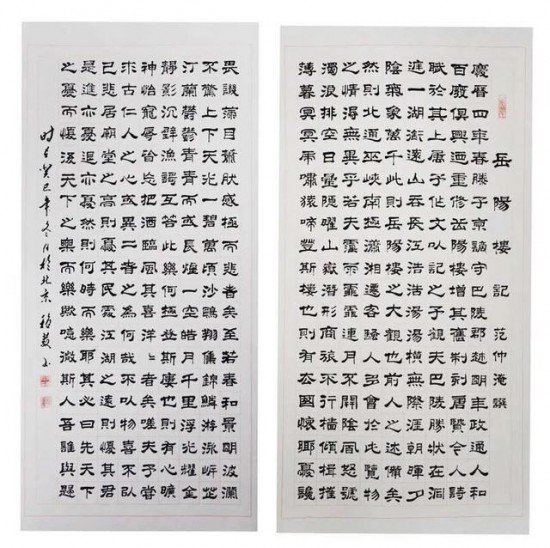 岳陽樓記 范仲淹撰
慶曆四年春滕子京謫守巴陵郡越明年政通人和
百廢俱興迺重修岳陽樓增其舊制刻唐賢今人詩
賦於其上屬予作文以記之予觀夫巴陵勝狀在洞
庭一湖銜遠山吞長江浩浩湯湯橫無際涯朝暉夕
陰氣象萬千此則岳陽樓之大觀也前人之述備矣
然則北通巫峽南極瀟湘遷客騷人多會於此覽物
之情得無異乎若夫霪雨霏霏連月不開陰風怒號
濁浪排空日星隱曜山嶽潛形商旅不行檣傾楫摧
薄暮冥冥虎嘯猿啼登斯樓也則有去國懷鄉憂讒
畏譏滿目蕭然感極而悲者矣至若春和景明波瀾
不驚上下天光一碧萬頃沙鷗翔集錦鱗游泳岸芷
汀蘭鬱鬱青青而或長煌一空皓月千里浮光耀金
靜影沉璧漁謌互答此樂何極登斯樓也則有心曠
神怡寵辱皆忘把酒臨風其喜洋洋者矣嗟夫予嘗
求古仁人之心或異二者之為何哉不以物喜不以
己悲居廟堂之高則憂其民處江湖之遠則憂其君
是進亦憂退亦憂然則何時而樂耶其必曰先天下
之憂而憂後天下之樂而樂歟噫微斯人吾誰與歸
时在癸巳年冬月於北京